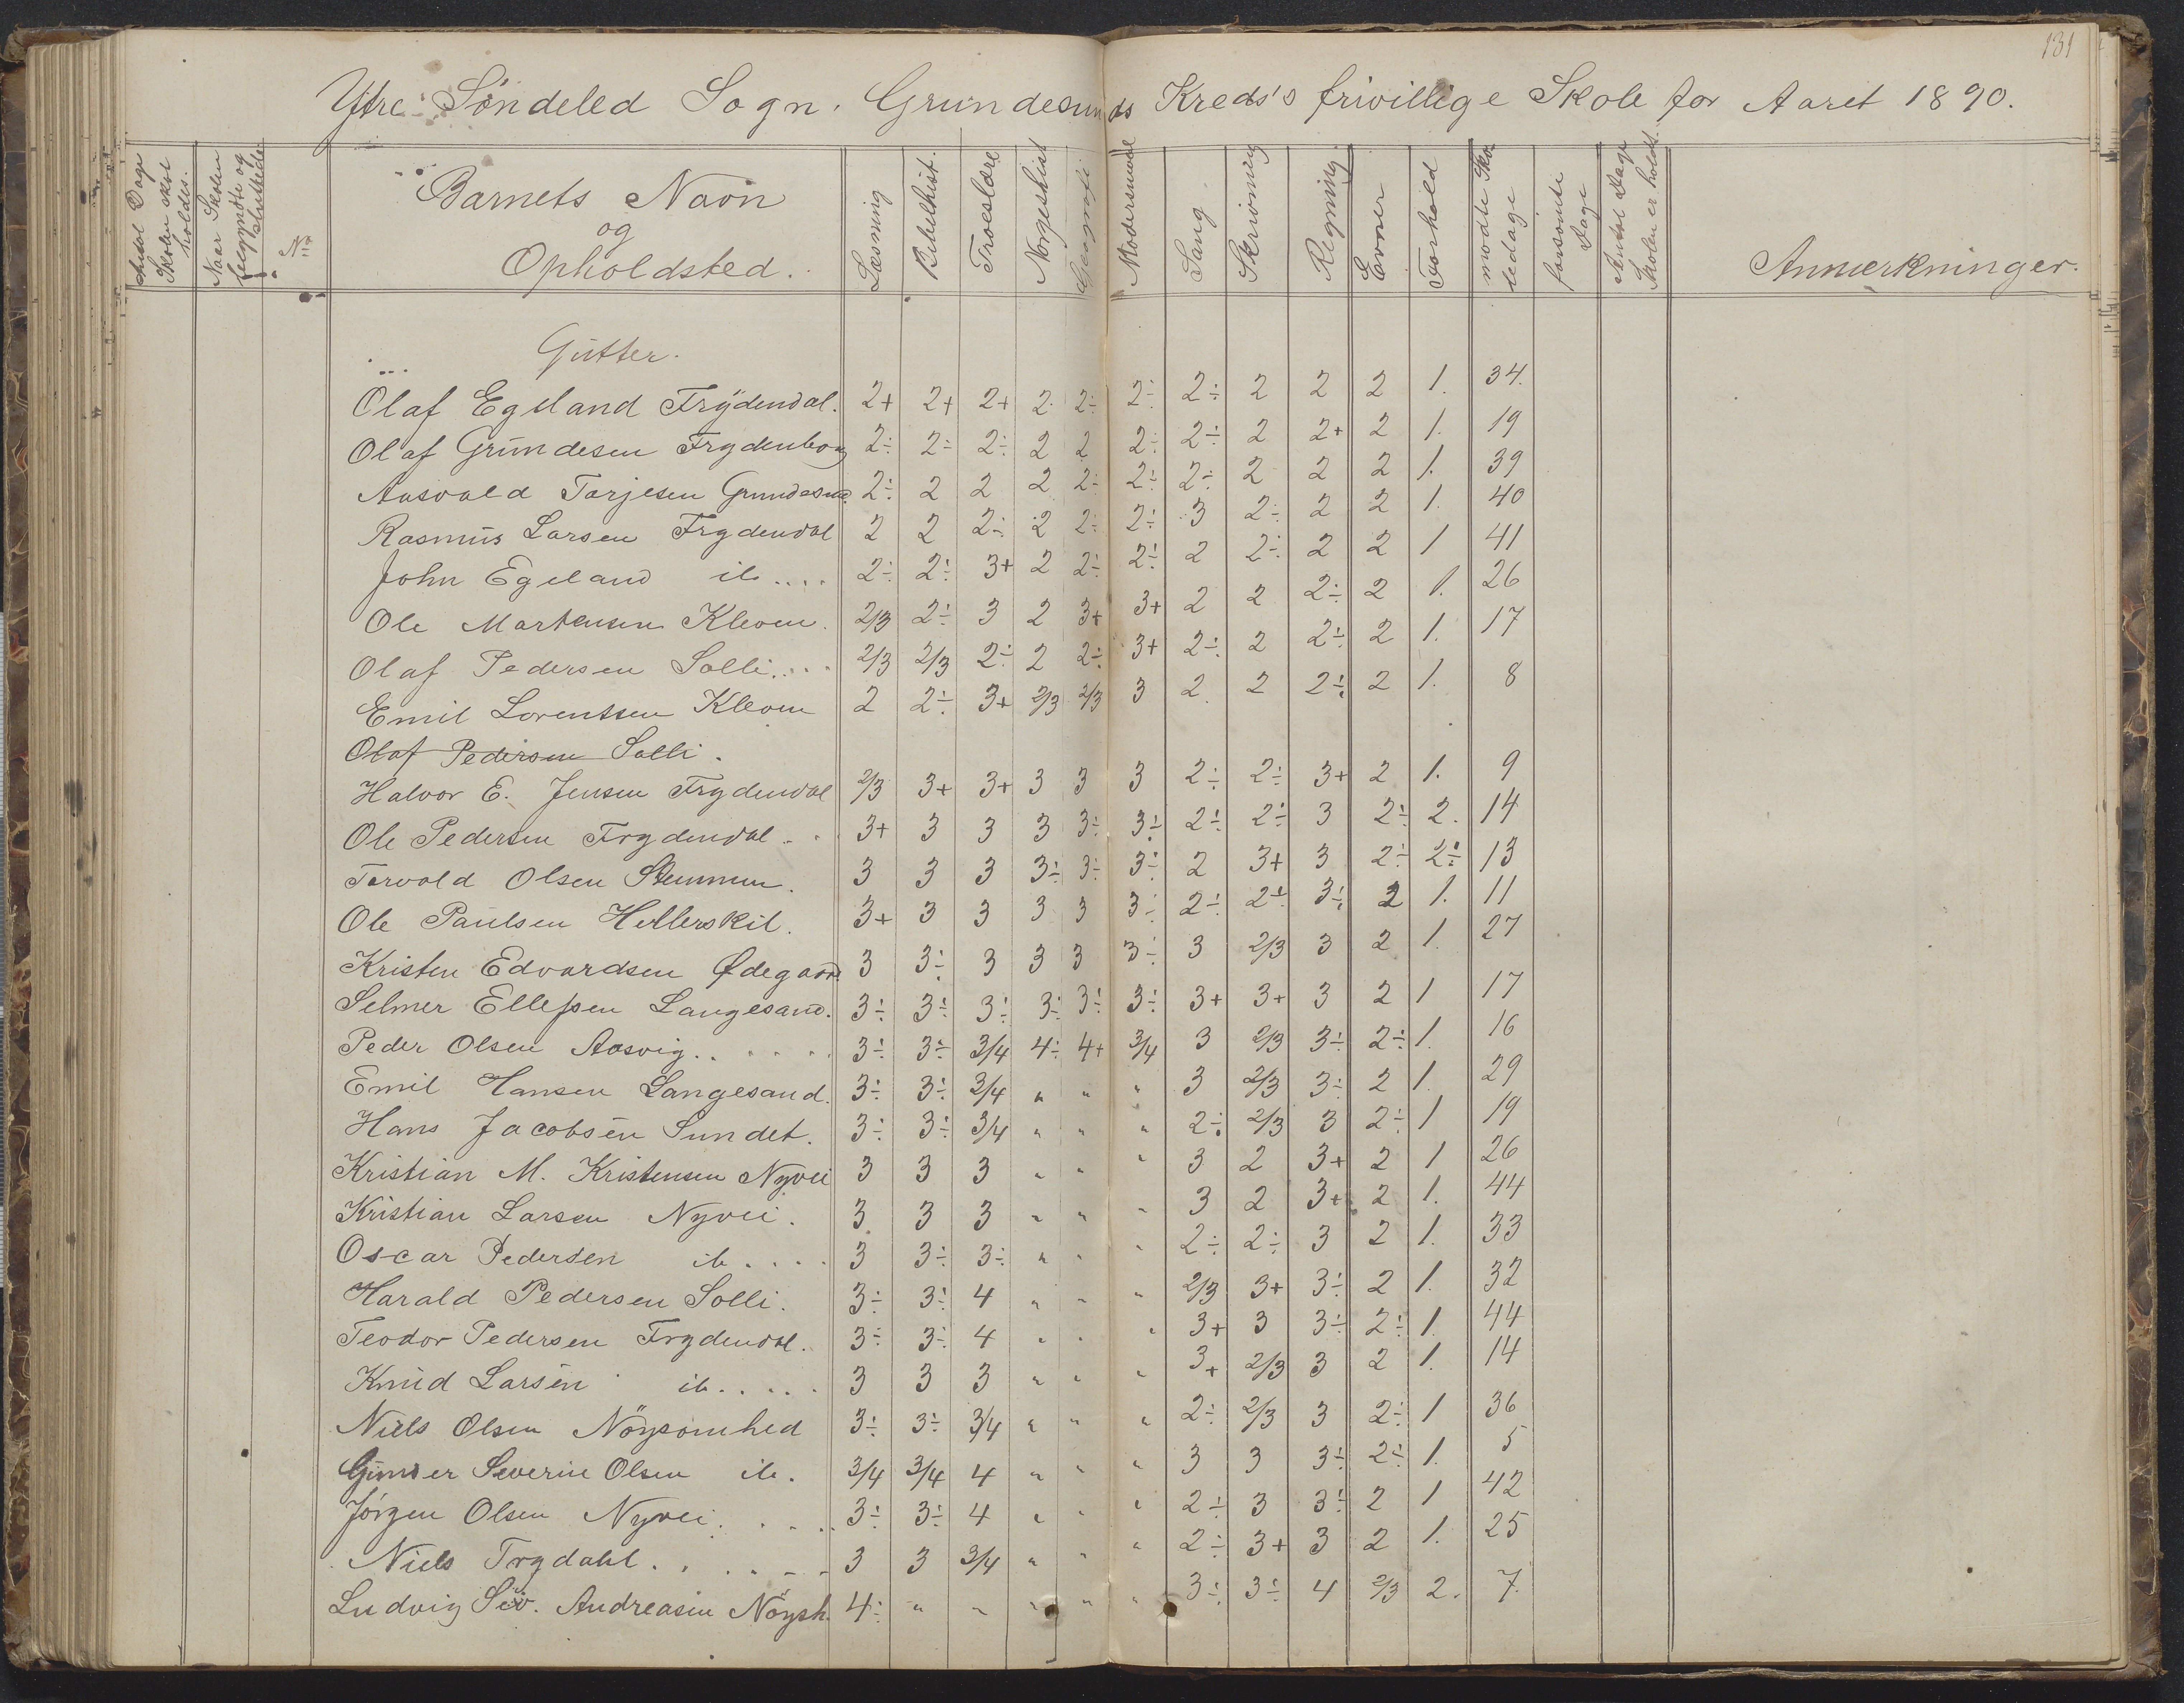 131
Ytre Söndeled Sogn. Grundesunds Kreds's frivillige Skole for Aaret 1890.
Antal Dage Skolen skal holdes. Naar Skolen begyndte og sluttede. No Barnets Navn og Opholdsted. Læsning Bibelhist. Troeslære Norgeshist Geografi Modersmaal Sang Skrivning Regning Evner Forhold mødte Skoledage forsømte Dage Antal Dage Skolen er holdt. Anmærkninger.
Gutter.
Olaf Egeland Frydendal. 2+ 2+ 2+ 2 2÷ 2÷ 2÷ 2 2 2 1. 34.
Olaf Grundesen Frydenborg 2÷ 2÷ 2÷ 2 2 2÷ 2÷ 2 2+ 2 1. 19
Aasvald Tarjesen Grundesund. 2÷ 2 2 2 2÷ 2÷ 2÷ 2 2 2 1. 39
Rasmus Larsen Frydendal 2 2 2÷ 2 2÷ 2÷ 3 2÷ 2 2 1. 40
John Egeland ib.... 2÷ 2÷ 3+ 2 2÷ 2÷ 2 2÷ 2 2 1 41
Ole Martensen Kleven. 2/3 2÷ 3 2 3+ 3+ 2 2 2÷ 2 1. 26
Olaf Pedersen Solli.... 2/3 2/3 2÷ 2 2÷ 3+ 2÷ 2 2÷ 2 1. 17
Emil Lorentsen Kleven 2 2÷ 3+ 2/3 2/3 3 2 2 2÷ 2 1. 8
Olaf Pedersen Solli.
Halvor E. Jensen Frydendal 2/3 3+ 3+ 3 3 3 2÷ 2÷ 3+ 2 1. 9
Ole Pedersen Frydendal.. 3+ 3 3 3 3÷ 3÷ 2÷ 2÷ 3 2÷ 2. 14
Torvald Olsen Stemmen. 3 3 3 3÷ 3÷ 3÷ 2 3+ 3 2÷ 2÷ 13
Ole Paulsen Hellerskil. 3+ 3 3 3 3 3÷ 2÷ 2÷ 3÷ 2 1. 11
Kristen Edvardsen Ødegaard 3 3÷ 3 3 3 3÷ 3 2/3 3 2 1. 27
Selmer Ellefsen Langesand. 3÷ 3÷ 3÷ 3÷ 3÷ 3÷ 3+ 3+ 3 2 1 17
Peder Olsen Aasvig...... 3÷ 3÷ 3/4 4÷ 4+ 3/4 3 2/3 3÷ 2÷ 1. 16
Emil Hansen Langesand. 3÷ 3÷ 3/4 " " " 3 2/3 3÷ 2 1. 29
Hans Jacobsen Sundet. 3÷ 3÷ 3/4 " " " 2÷ 2/3 3 2÷ 1 19
Kristian M. Kristensen Nyvei 3 3 3 " " " 3 2 3+ 2 1 26
Kristian Larsen Nyvei. 3 3 3 " " " 3 2 3+ 2 1. 44
Oscar Pedersen ib.... 3 3÷ 3÷ " " " 2÷ 2÷ 3 2 1. 33
Harald Pedersen Solli. 3÷ 3÷ 4 " " " 2/3 3+ 3÷ 2 1. 32
Teodor Pedersen Frydendal. 3÷ 3÷ 4 " " " 3+ 3 3÷ 2÷ 1. 44
Knud Larsen ib..... 3 3 3 " " " 3+ 2/3 3 2 1. 14
Niels Olsen Nöysomhed 3÷ 3÷ 3/4 " " " 2÷ 2/3 3 2÷ 1 36
Gunder Severin Olsen ib. 3/4 3/4 4 " " " 3 3 3÷ 2÷ 1. 5
Jörgen Olsen Nyvei..... 3÷ 3÷ 4 " " " 2÷ 3 3÷ 2 1 42
Niels Trydahl...... 3 3 3/4 " " " 2÷ 3+ 3 2 1. 25
Ludvig Sev. Andreasen Nöysh. 4÷ " " " " " 3÷ 3÷ 4 2/3 2. 7.